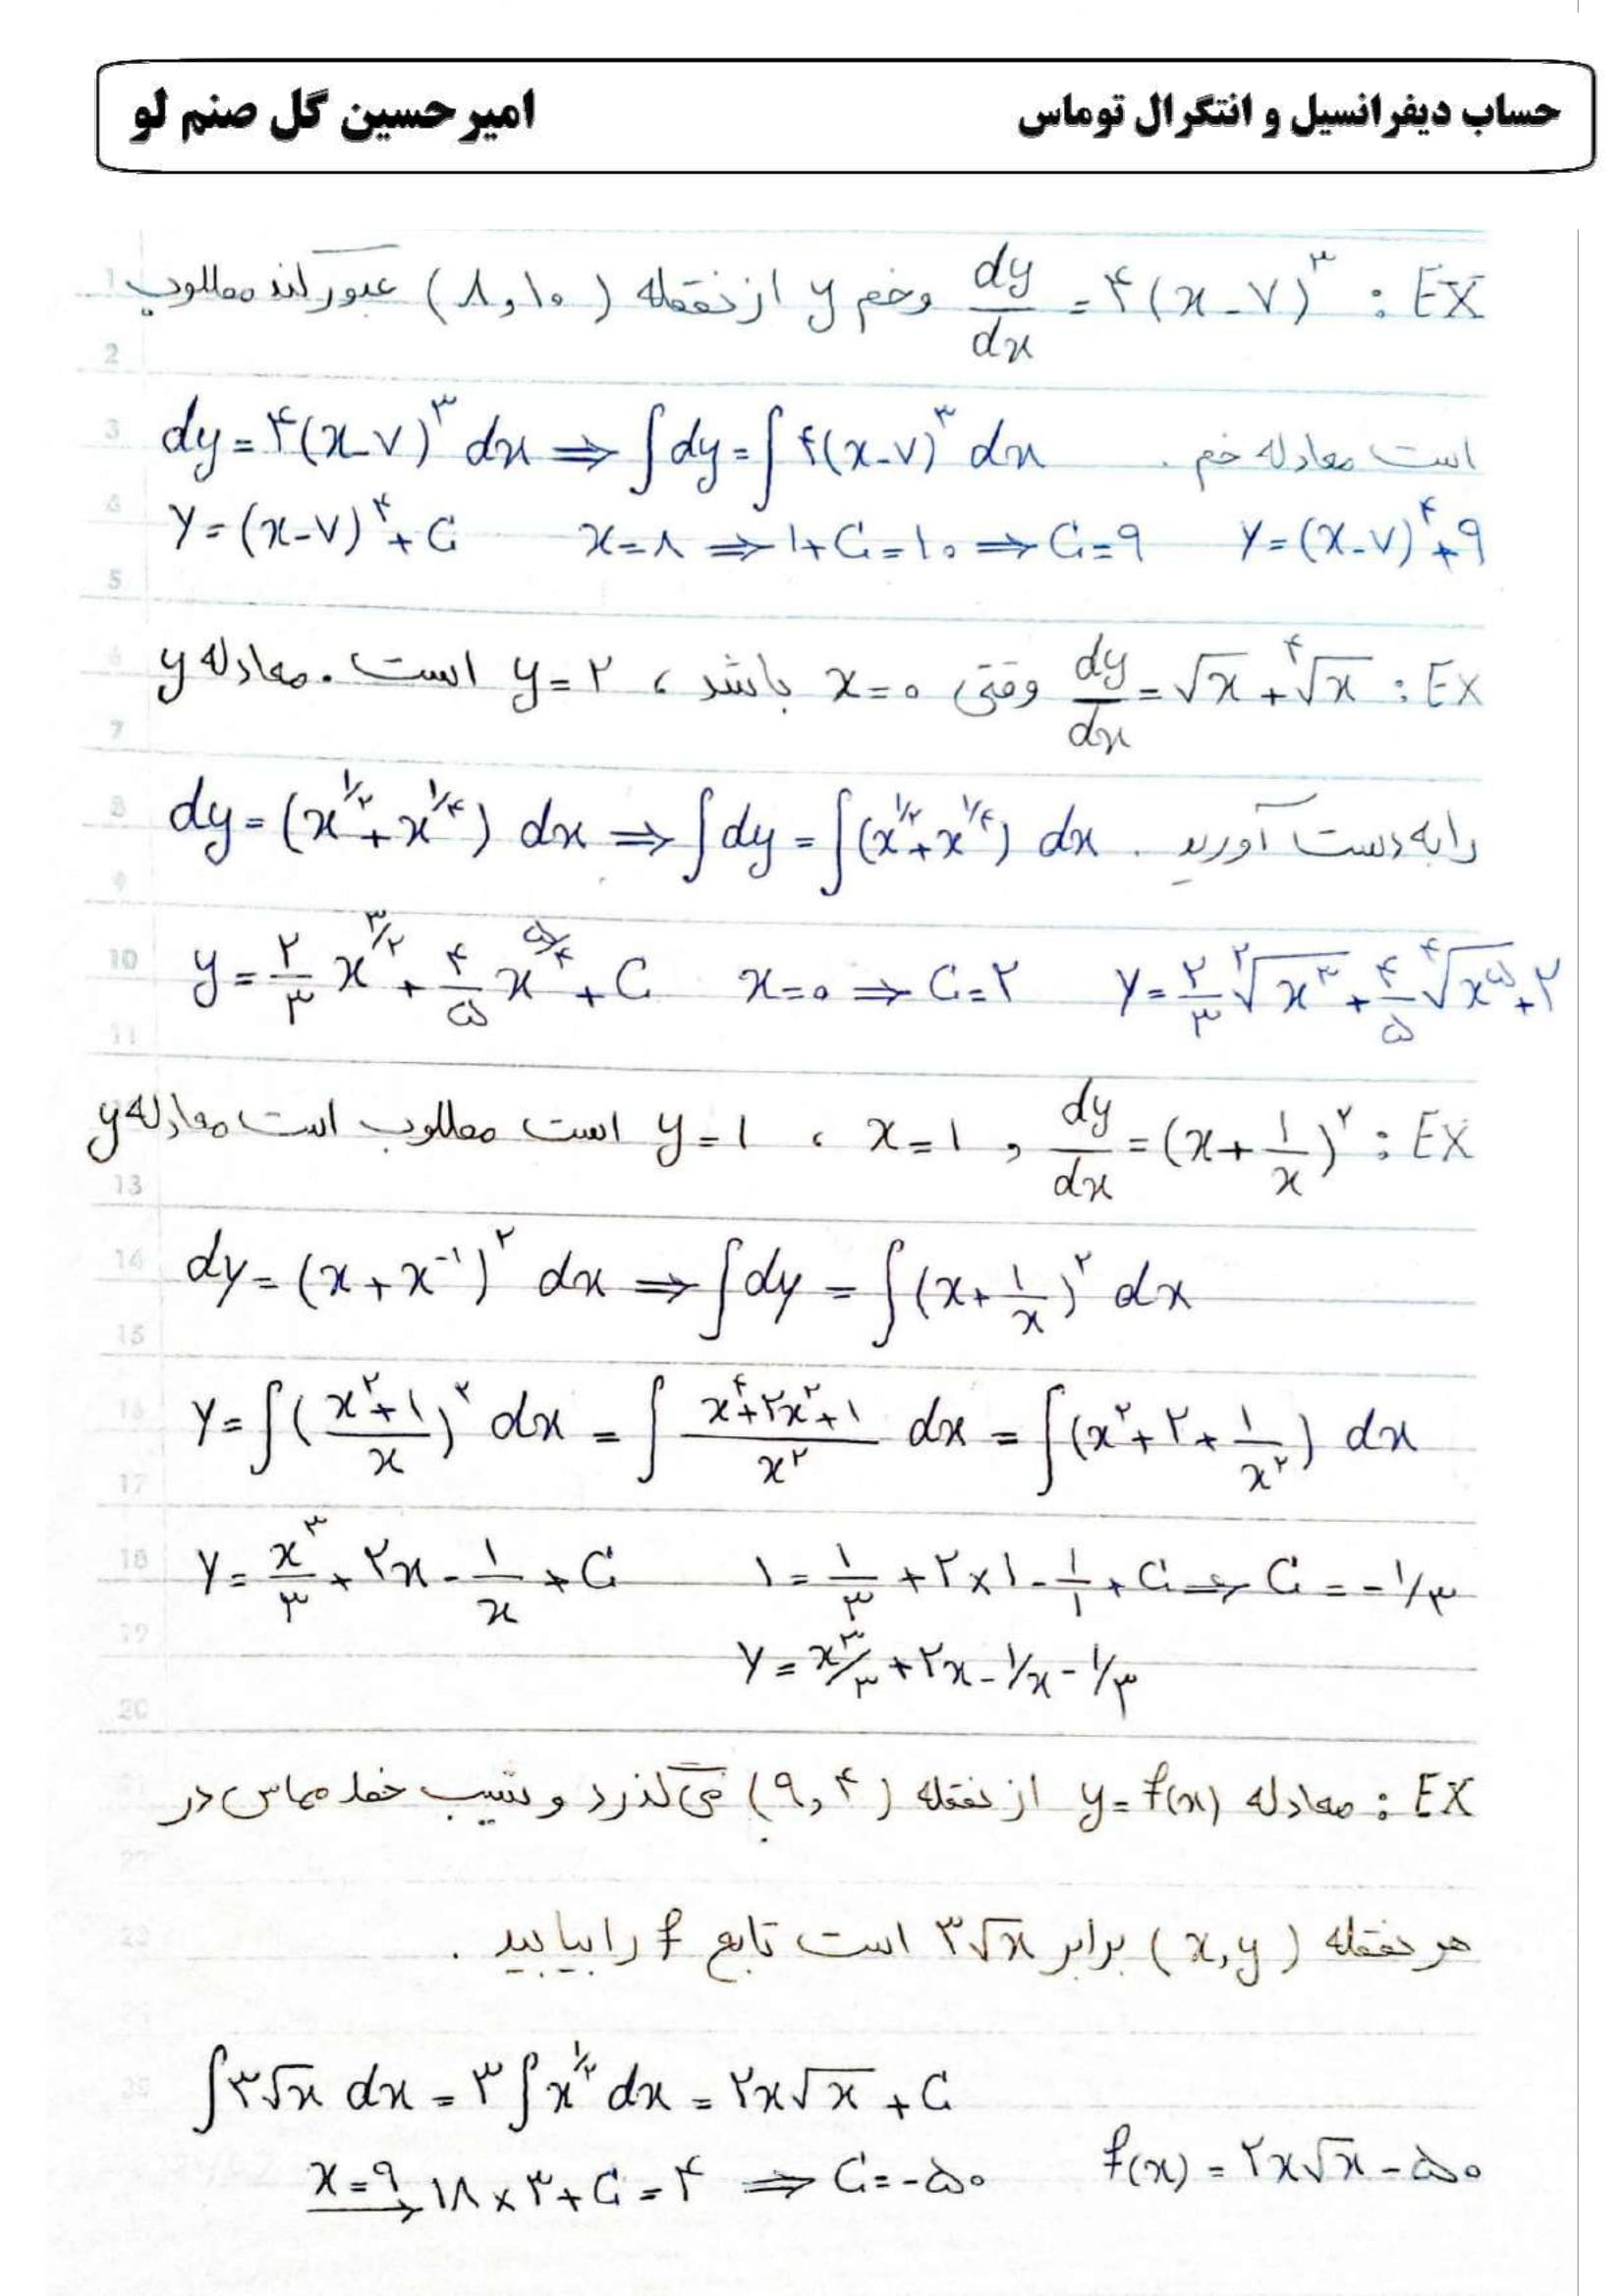 حساب دیفرانسیل و انتگرال توماس امیر حسین گل صنم لو
EX : dy/dx = ۴(x-۷)^۳ وخم y از نقطه (۸,۱۰) عبور کند مطلوب
است معادله خم . dy = ۴(x-۷)^۳ dx ⇒ ∫dy = ∫۴(x-۷)^۳ dx
y = (x-۷)^۴ + C x=۸ ⇒ ۱+C=۱۰ ⇒ C=۹ y = (x-۷)^۴ + ۹
EX : dy/dx = √x + ∜x وقتی x=۰ باشد ، y=۲ است . معادله y
را به دست آورید . dy = (x^{۱/۲} + x^{۱/۴}) dx ⇒ ∫dy = ∫(x^{۱/۲} + x^{۱/۴}) dx
y = ۲/۳ x^{۳/۲} + ۴/۵ x^{۵/۴} + C x=۰ ⇒ C=۲ y = ۲/۳ ²√x^۳ + ۴/۵ ∜x^۵ + ۲
EX : dy/dx = (x + ۱/x)^۲ و x=۱ ، y=۱ است مطلوب است معادله y
dy = (x + x^{-۱})^۲ dx ⇒ ∫dy = ∫(x + ۱/x)^۲ dx
y = ∫((x^۲+۱)/x)^۲ dx = ∫ (x^۴+۲x^۲+۱)/x^۲ dx = ∫(x^۲ + ۲ + ۱/x^۲) dx
y = x^۳/۳ + ۲x - ۱/x + C ۱ = ۱/۳ + ۲×۱ - ۱/۱ + C ⇒ C = -۱/۳
y = x^۳/۳ + ۲x - ۱/x - ۱/۳
EX : معادله y = f(x) از نقطه (۹,۴) می‌گذرد و شیب خط مماس در
هر نقطه (x,y) برابر ۳√x است تابع f را بیابید .
∫۳√x dx = ۳∫x^{۱/۲} dx = ۲x√x + C
x=۹ → ۱۸×۳+C=۴ ⇒ C=-۵۰ f(x) = ۲x√x - ۵۰